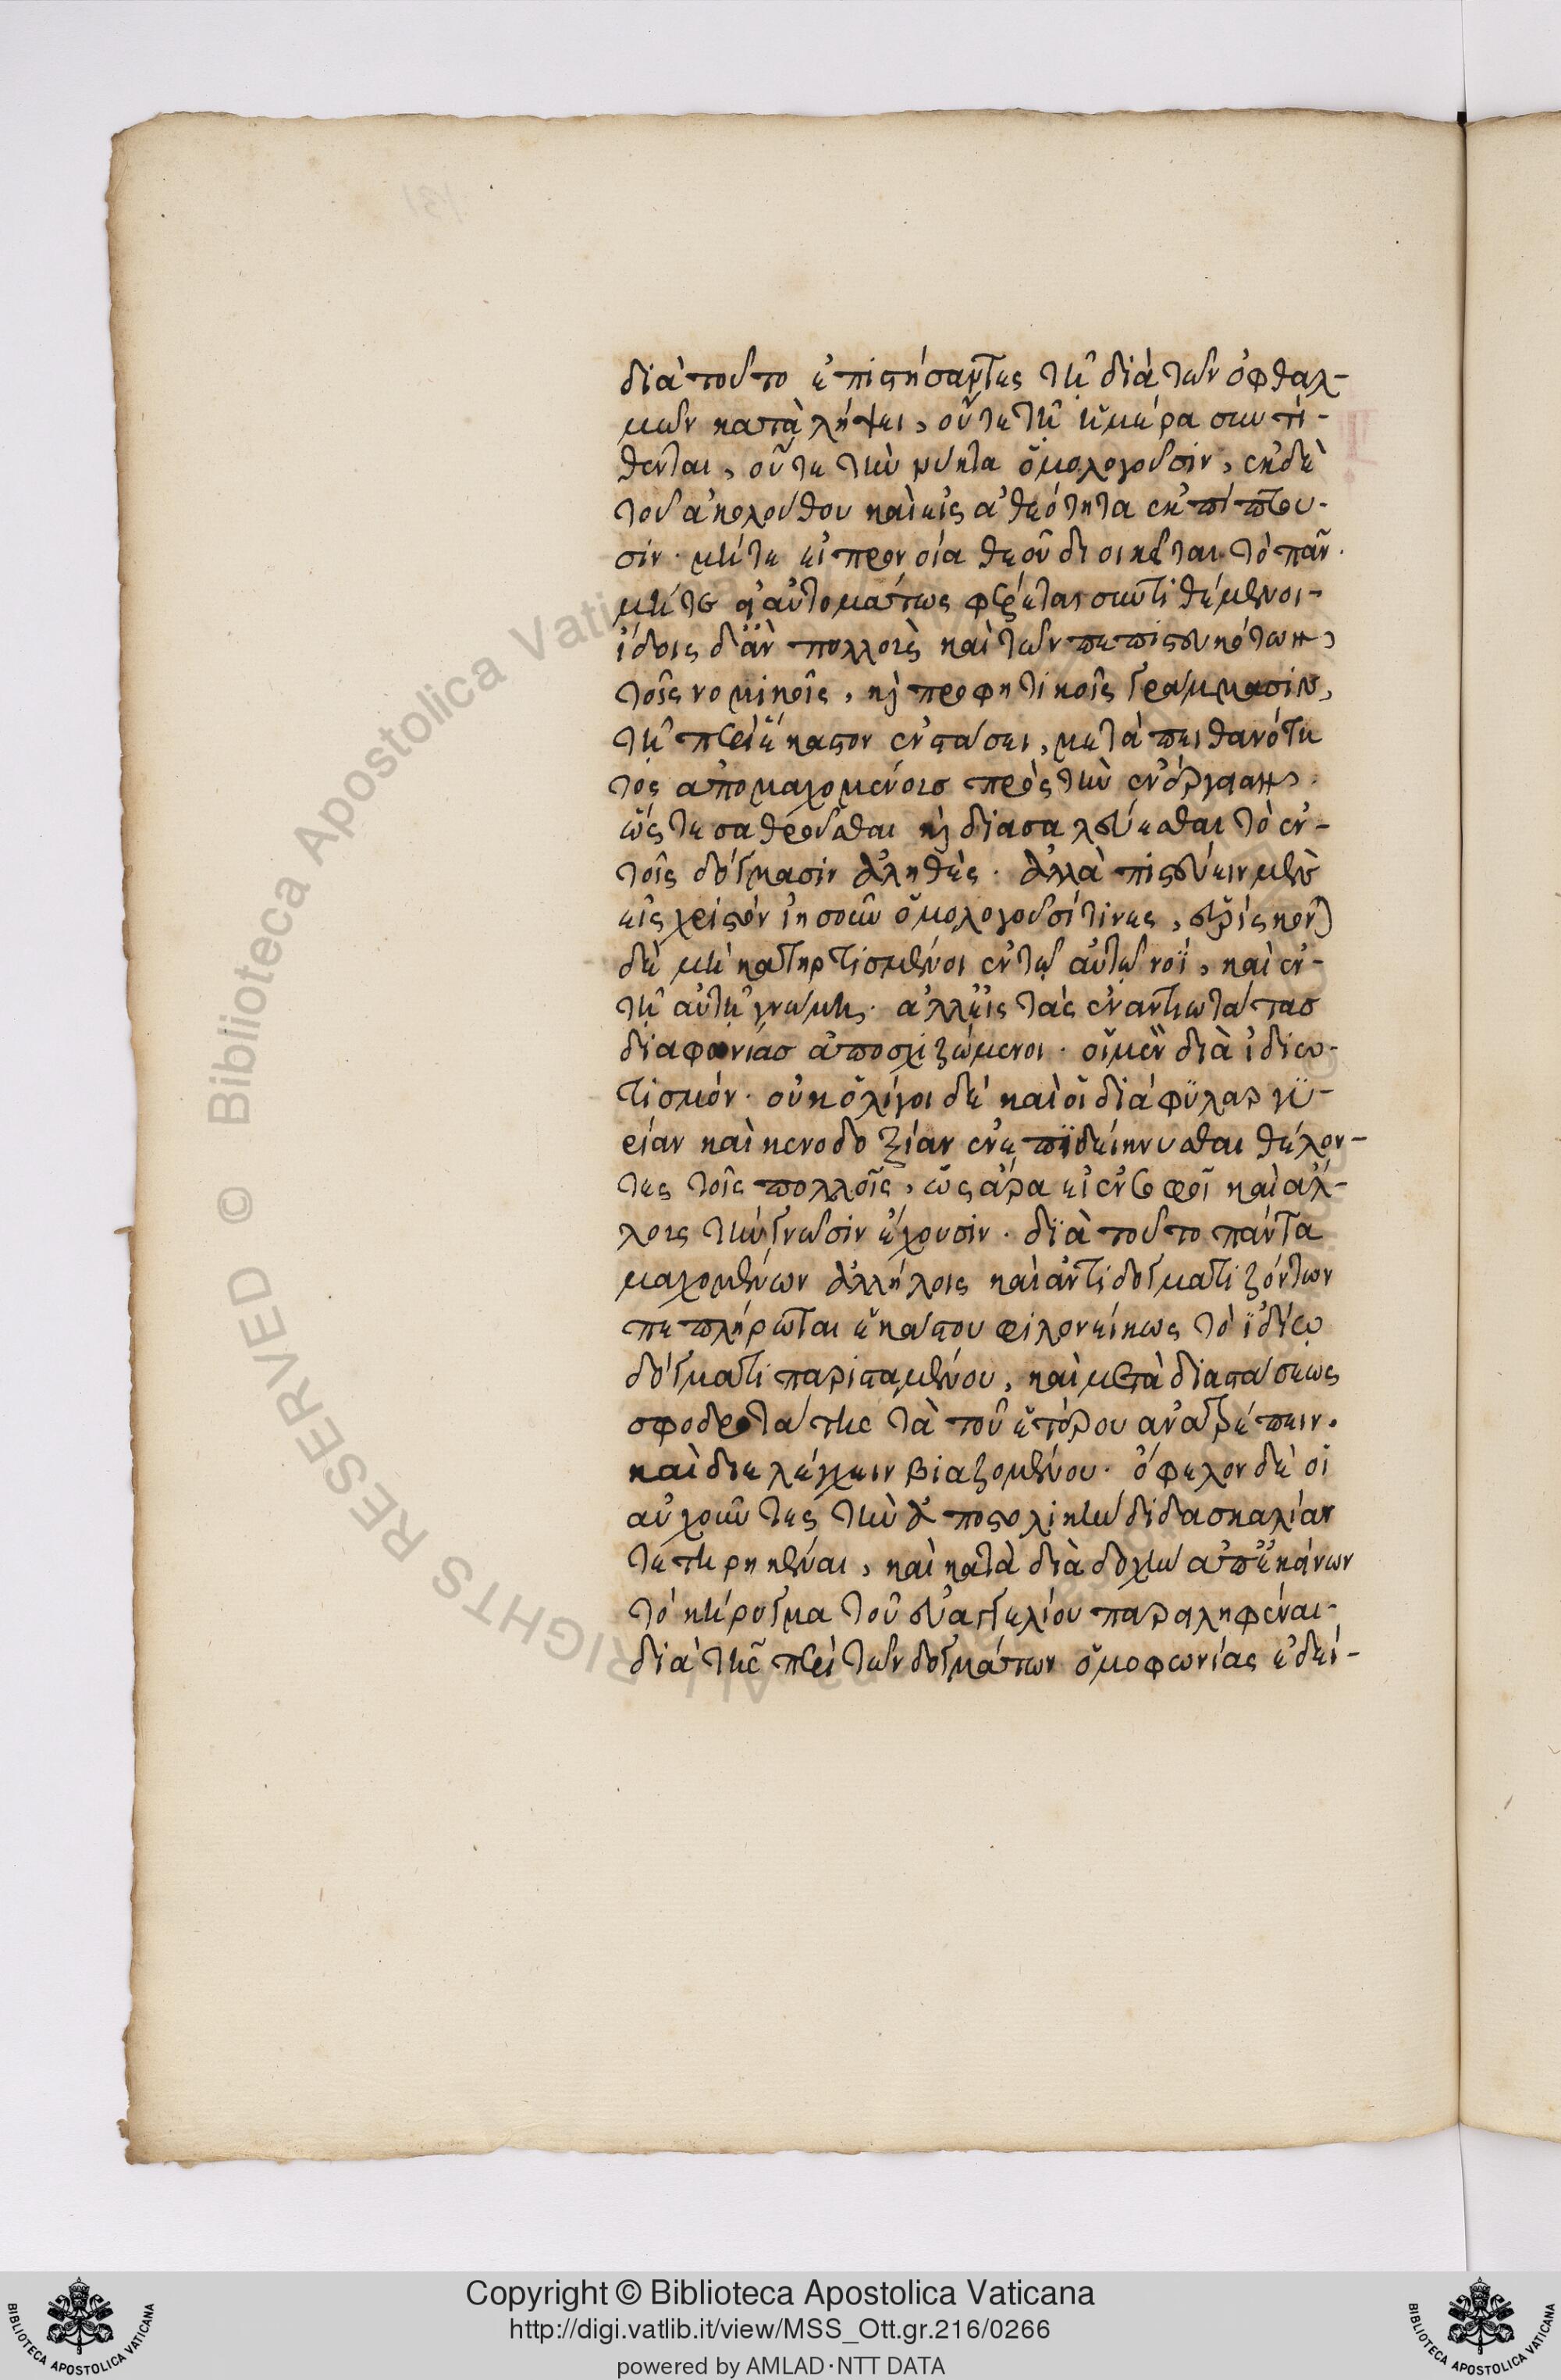 διὰ τοῦτο ἐπιστήσαντες τῆ διὰ τῶν ὀφθαλ-
μῶν καταλήψει, οὔτε τῆ ἡμέρα συντί-
θενται, οὔτε τὴν νύκτα ὁμολογοῦσιν, ἐκ δὲ
τοῦ ἀκολούθου καὶ εἰς ἀθεότητα ἐκπίπτου-
σιν. μήτε εἰ προνοία θεοῦ διοικεῖται τὸ πᾶν.
μήτε αὐτομάτως φέρεται συντιθέμενοι-
ἴδοις δ' ἂν πολλοὺς καὶ τῶν πεπιστευκότων,
τοῖς νομικοῖς, κỳ προφητικοῖς γράμμασιν,
τῆ περὶ ἕκαστον ἐνστάσει, μετὰ πειθανότη
τος ἀπομαχομένοισ πρὸς τὴν ἐνάργειαν,
ὥς τε σαθροῦσθαι κỳ διασαλεύεσθαι τὸ ἐν-
τοῖς δόγμασιν ἀληθὲς. ἀλλὰ πιστεύειν μὲν
εἰς χριστὸν ἰησοῦν ὁμολογοῦσί τινες,
δὲ μὴ κατηρτισμένοι ἐν τῷ αὐτῷ νοῒ, καὶ ἐν-
τῇ αὐτῇ γνώμη. ἀλλ' εἰς τὰς ἐναντιωτάτασ
διαφωνίασ ἀποσχιζόμενοι. οἱ μὲν διὰ ἰδιω-
τισμόν. οὐκ ὀλίγοι δὲ καὶ οἱ διὰ φϋλαργϋ-
ρίαν καὶ κενοδοξίαν ἐνεπιδείκνυσθαι θέλον-
τες τοῖς πολλοῖς, ὡς ἄρα εἰεν σοφοὶ καὶ ἀλ-
λοις τὴν γνῶσιν ἔχουσιν. διὰ τοῦτο πάντα
μαχομένων ἀλλήλοις καὶ ἀντιδογματιζόντων
πεπλήρωται ἑκάστου φιλονείκως τὸ ἰδίω
δόγματι παρισταμένου, καὶ μετὰ διαστάσεως
σφοδροτάτης τὰ τοῦ ἑτέρου ἀνατρέπειν.
καὶ διελέγχειν βιαζομένου. ὄφελον δὲ οἱ
αὐχοῦντες τὴν ἀποστολικὴν διδασκαλίαν
τετηρηκέναι, καὶ κατὰ διαδοχὴν ἀπ' ἐκείνων
τὸ κήρυγμα τοῦ εὐαγγελίου παραληφέναι-
διὰ τῆς περὶ τῶν δογμάτων ὁμοφωνίας ἐδεί-
© Biblioteca Apostolica Vaticana
ALL RIGHTS RESERVED
Copyright © Biblioteca Apostolica Vaticana
http://digi.vatlib.it/view/MSS_Ott.gr.216/0266
powered by AMLAD·NTT DATA
BIBLIOTECA APOSTOLICA VATICANA
BIBLIOTECA APOSTOLICA VATICANA